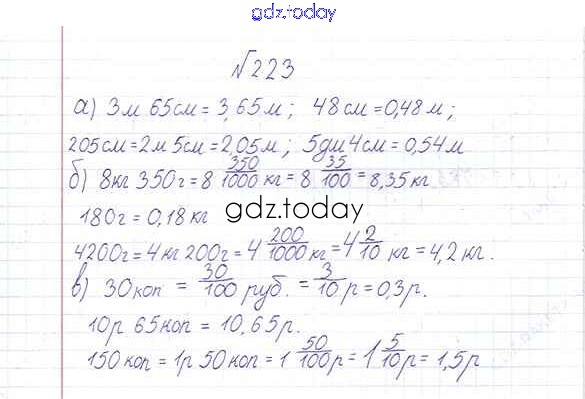 gdz.today
№223
а) 3м 65см = 3,65м; 48см = 0,48м;
205см = 2м 5см = 2,05м; 5дм 4см = 0,54м
б) 8кг 350г = 8 350/1000 кг = 8 35/100 = 8,35кг
180г = 0,18кг
gdz.today
4200г = 4кг 200г = 4 200/1000 кг = 4 2/10 кг = 4,2кг.
в) 30коп = 30/100 руб. = 3/10 р = 0,3р.
10р 65коп = 10,65р.
150коп = 1р 50коп = 1 50/100р = 1 5/10р = 1,5р